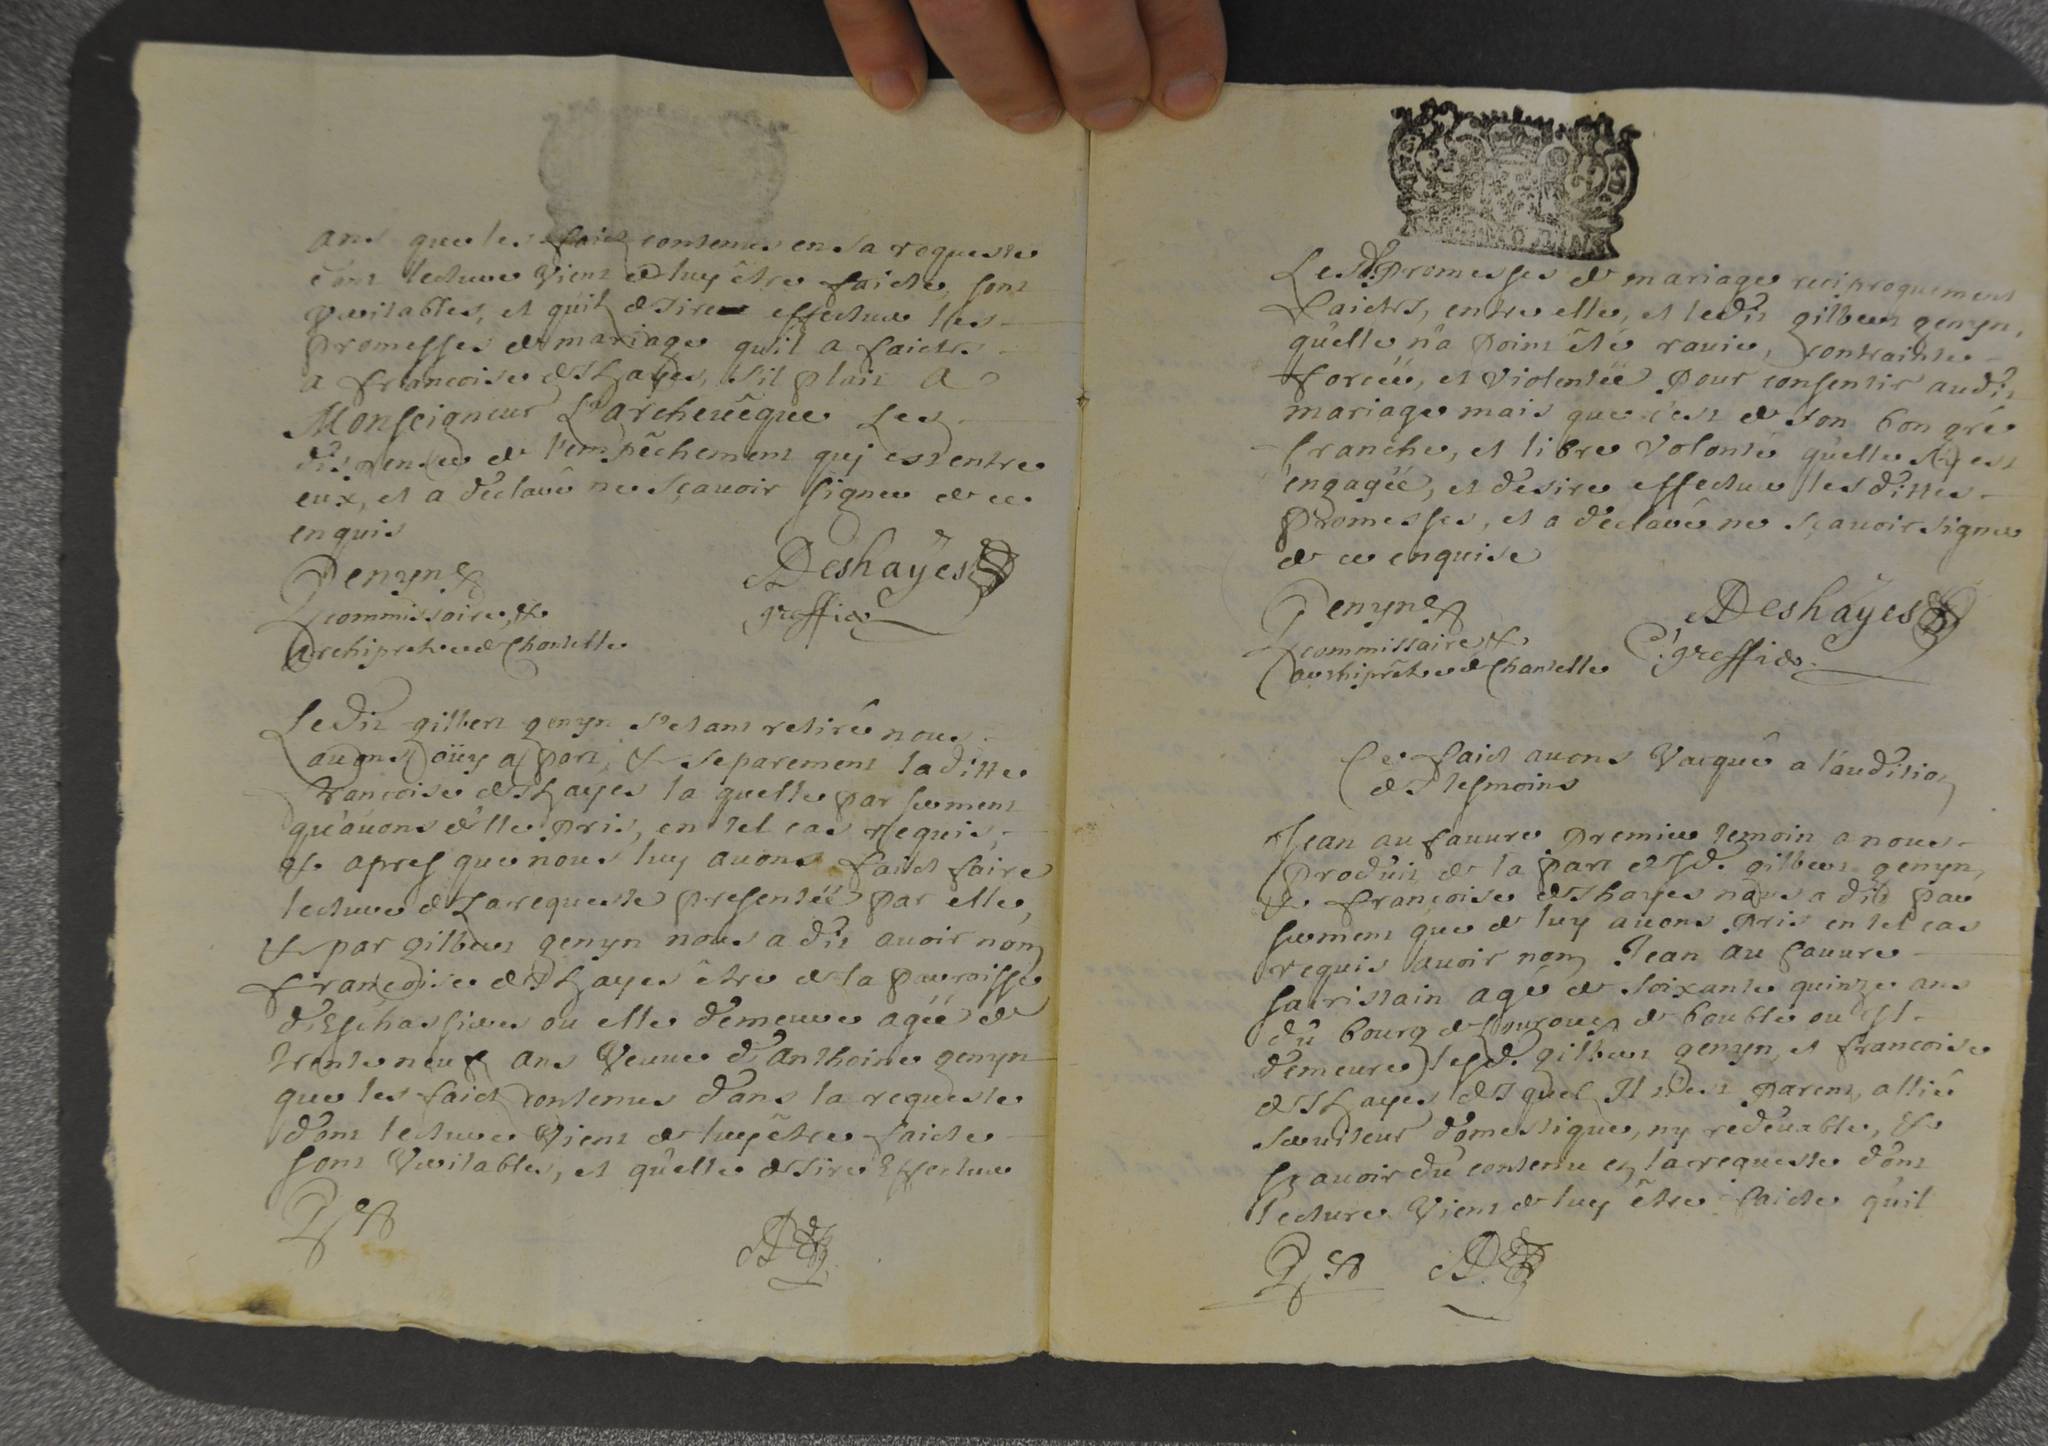 ans que les faict contenus en sa requeste
dont lecture vient de luy être faicte, sont
veritables, et quil desire effectuer les
promesses de mariage quil a faictes
a francoise deshayes, sil plait a
Monseigneur L'archevêque Les
dispenser de l'empêchement qui est entre
eux, et a déclaré ne sçavoir signer de ce
enquis
Genyn
Deshayes
commissoire, &
greffier
archiprêtre de Chantelle
Ledit gilbert genyn s'etant retiré nous
avons oüy a part, & separement la ditte
francoise deshayes la quelle par serment
qu'avons d'elle pris, en tel cas requis,
& apres que nous luy avons faict faire
lecture de la requeste presentée par elle,
& par gilbert genyn nous a dit avoir nom
francoise deshayes être de la parroisse
d'Eschassieres ou elle demeure agéé de
trente neuf ans veuve d'anthoine genyn
que les faict contenus dans la requeste
dont lecture vient de luy être faicte
sont veritables, et qu'elle desire effectuer
Lesd. promesses de mariage reciproquement
faictes, entre elle, et ledit gilbert genyn,
qu'elle n'a point été ravie, contrainte
forcéé, et violentéé pour consentir audit
mariage mais que c'est de son bon gré
franche, et libre volonté qu'elle s'y est
éngagéé, et desire effectuer les dittes
promesses, et a déclaré ne sçavoir signer
de ce enquise
Genyn
Deshayes
commissaire &
greffier
archiprêtre de Chantelle
Ce faict avons vacqué a l'audition
des tesmoins
Jean au fauure premier temoin a nous
produit de la part desd. gilbert genyn,
& françoise deshayes nous a dit par
serment que de luy avons pris en tel cas
requis avoir nom Jean au fauure
sacristain agé de soixante quinze ans
du bourg de de bouble ou il
demeure lesd. gilbert genyn, et francoise
deshayes desquel Il n'est parent, allié
serviteur domestique, ny redevable, &
sçavoir du contenu en la requeste dont
lecture vient de luy être faicte qu'il